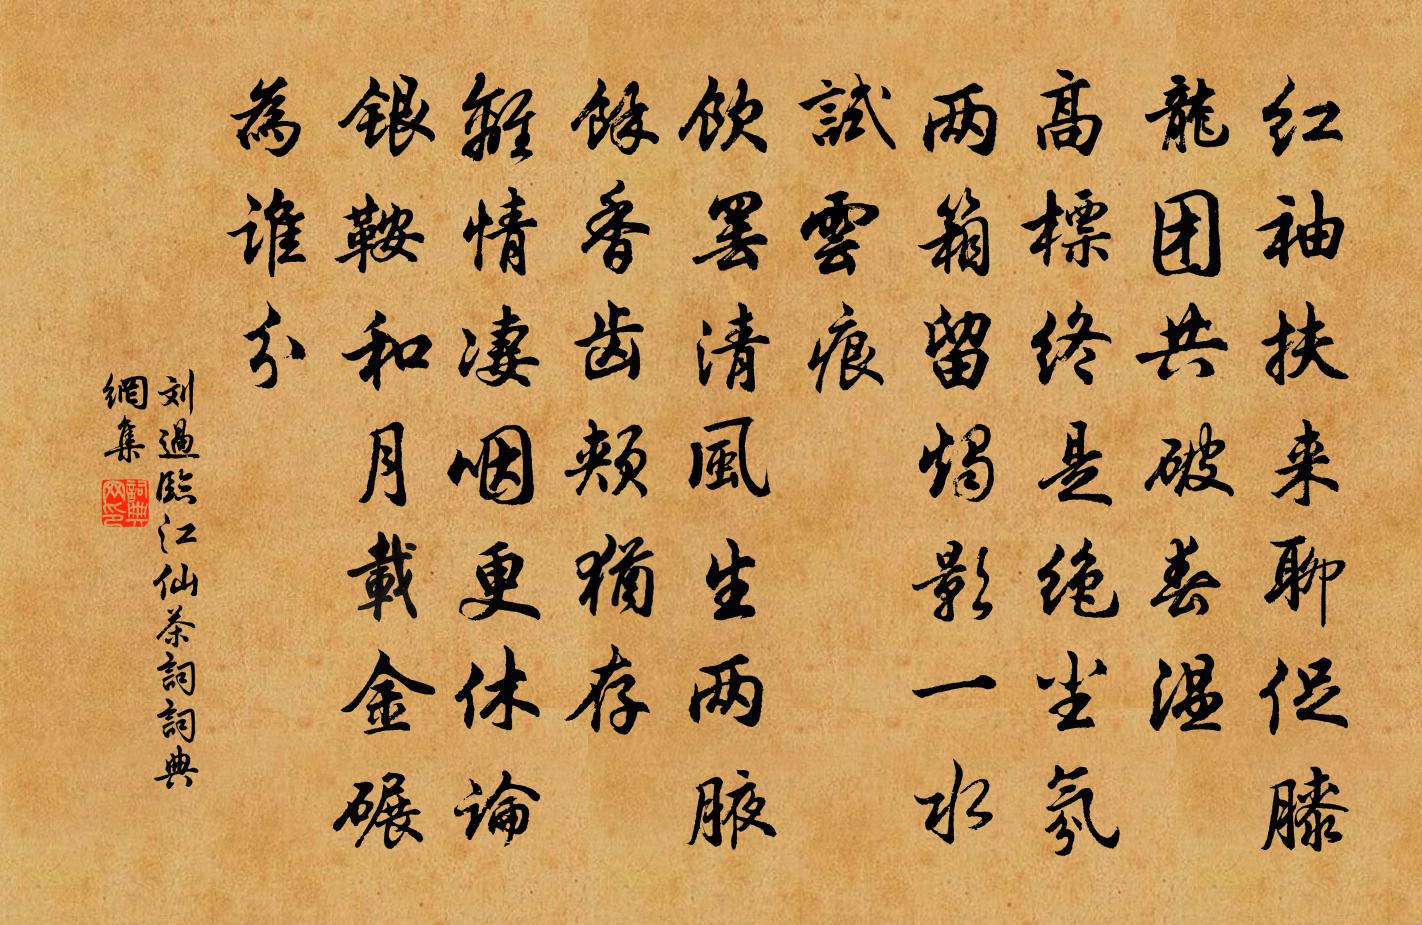 红袖扶来聊促膝
龍团共破春温
高標终是绝尘氛
两箱留燭影一水
試雲痕
飲罢清風生两腋
餘香齿颊猶存
離情凄咽更休論
銀鞍和月載金碾
為谁分
刘過臨江仙茶詞詞典
網集
詞典
网印